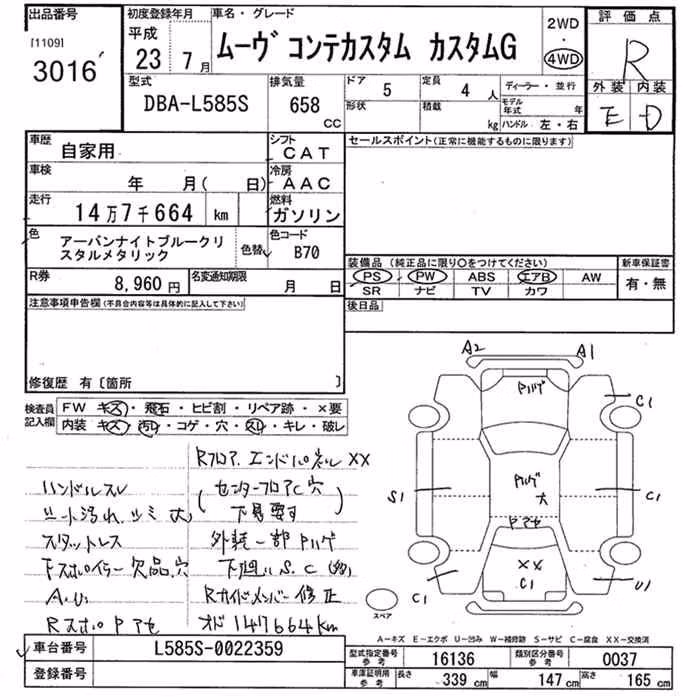 出品番号
[1109]
3016
初度登録年月
平成
23 7月
車名・グレード
ムーヴ コンテカスタム カスタムG
2WD
・
4WD
評価点
R
外装 内装
E D
型式
DBA-L585S
排気量
658
CC
ドア
5
定員
4 人
形状
積載
kg
ディーラー・並行
モデル年式 年
ハンドル 左・右
車歴
自家用
シフト
CAT
車検
年 月( 日)
冷房
AAC
走行
14万7千664 km
燃料
ガソリン
色
アーバンナイトブルークリスタルメタリック
色替
色コード
B70
R券
8,960円
名変通知期限
月 日
セールスポイント(正常に機能するものに限ります)
装備品(純正品に限り○をつけてください)
PS PW ABS エアB AW
SR ナビ TV カワ
新車保証書
有・無
後日品
注意事項申告欄(不具合内容等は具体的に記入して下さい)
修復歴 有〔箇所 〕
検査員記入欄
FW キズ・飛石・ヒビ割・リペア跡・×要
内装 キズ・汚れ・コゲ・穴・スレ・キレ・破レ
Rフロア、エンドパネル XX
ハンドルスレ
(センターフロアC穴
シート汚れ、シミ 大
下見要す)
スタットレス
外装一部Pハゲ
Fスポイラー欠品、穴
下廻りS、C
A、U
Rサイドメンバー修正
RスポPアセ
オド147664km
A2
A1
Pハゲ
C1
S1
Pハゲ
大
C1
Pアセ
XX
C1
C1
U1
スペア
A-キズ E-エクボ U-凹み W-補修跡 S-サビ C-腐食 XX-交換済
車台番号
L585S-0022359
登録番号
型式指定番号
参考
16136
類別区分番号
参考
0037
車庫証明用
参考
長さ
339 cm
幅
147 cm
高さ
165 cm